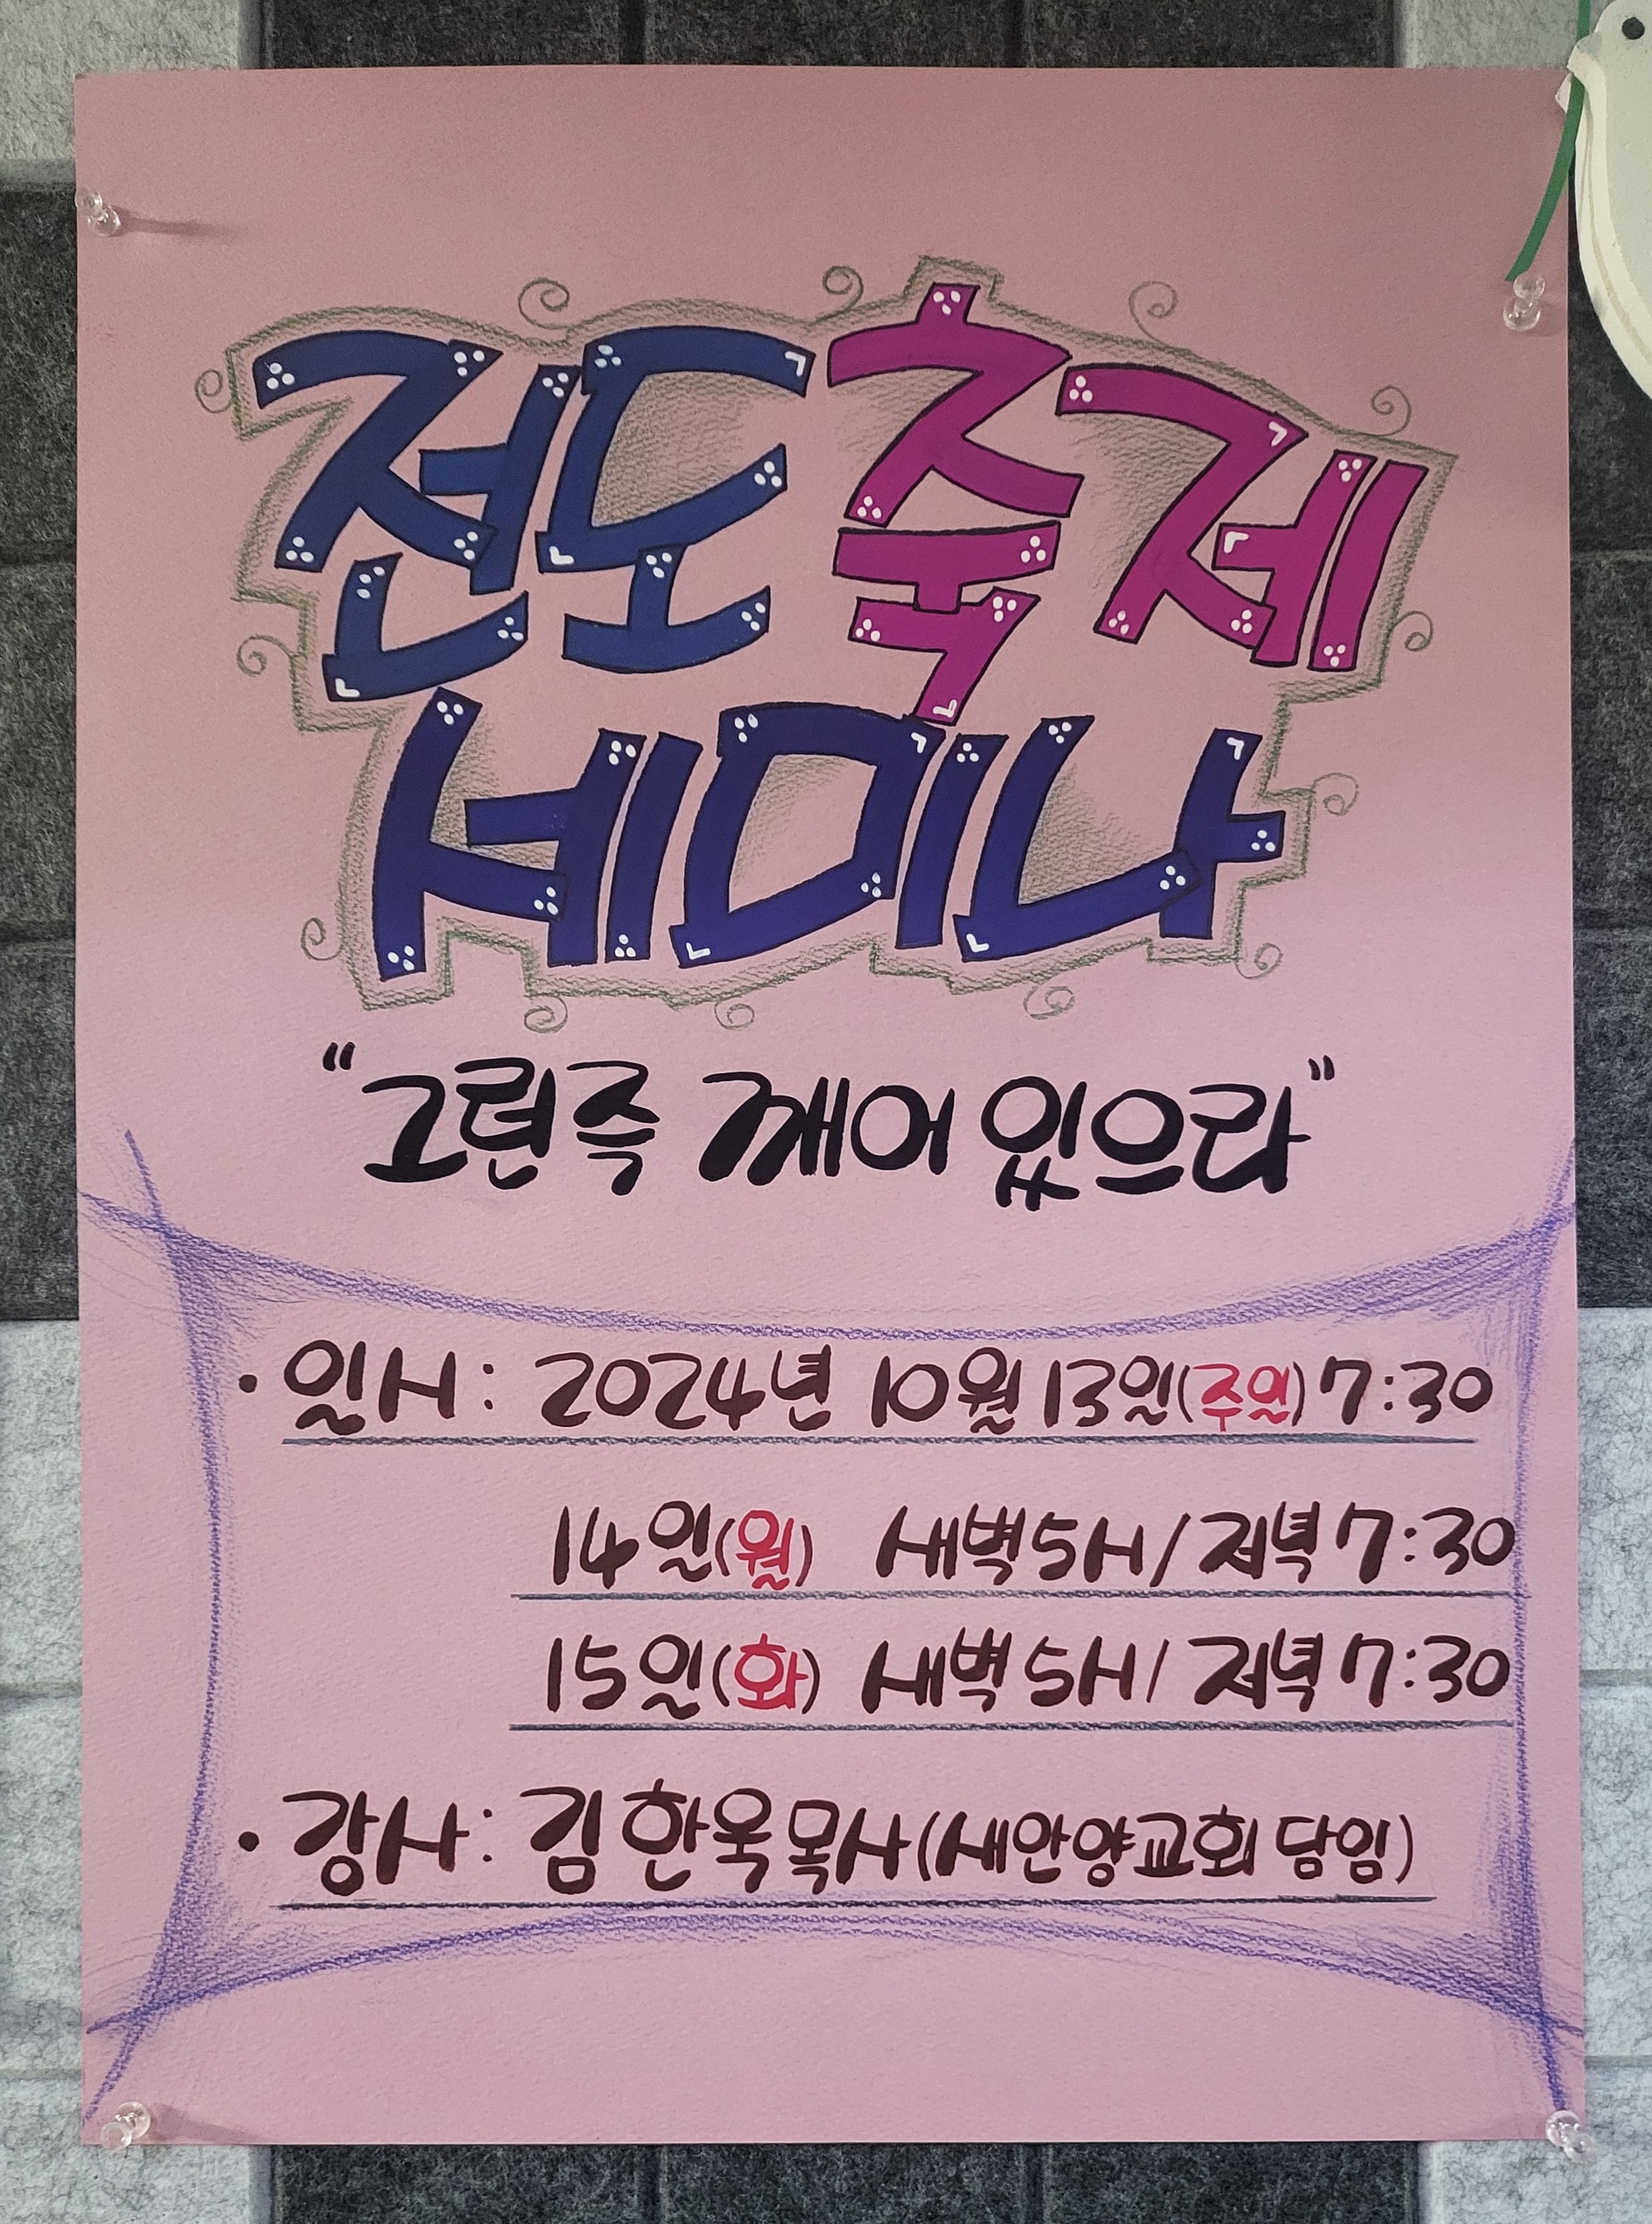 전도 축제
세미나
"그런즉 깨어 있으라"
· 일시 : 2024년 10월 13일(주일) 7:30
14일(월) 새벽 5시 / 저녁 7:30
15일(화) 새벽 5시 / 저녁 7:30
· 강사 : 김한욱 목사(새안양교회 담임)